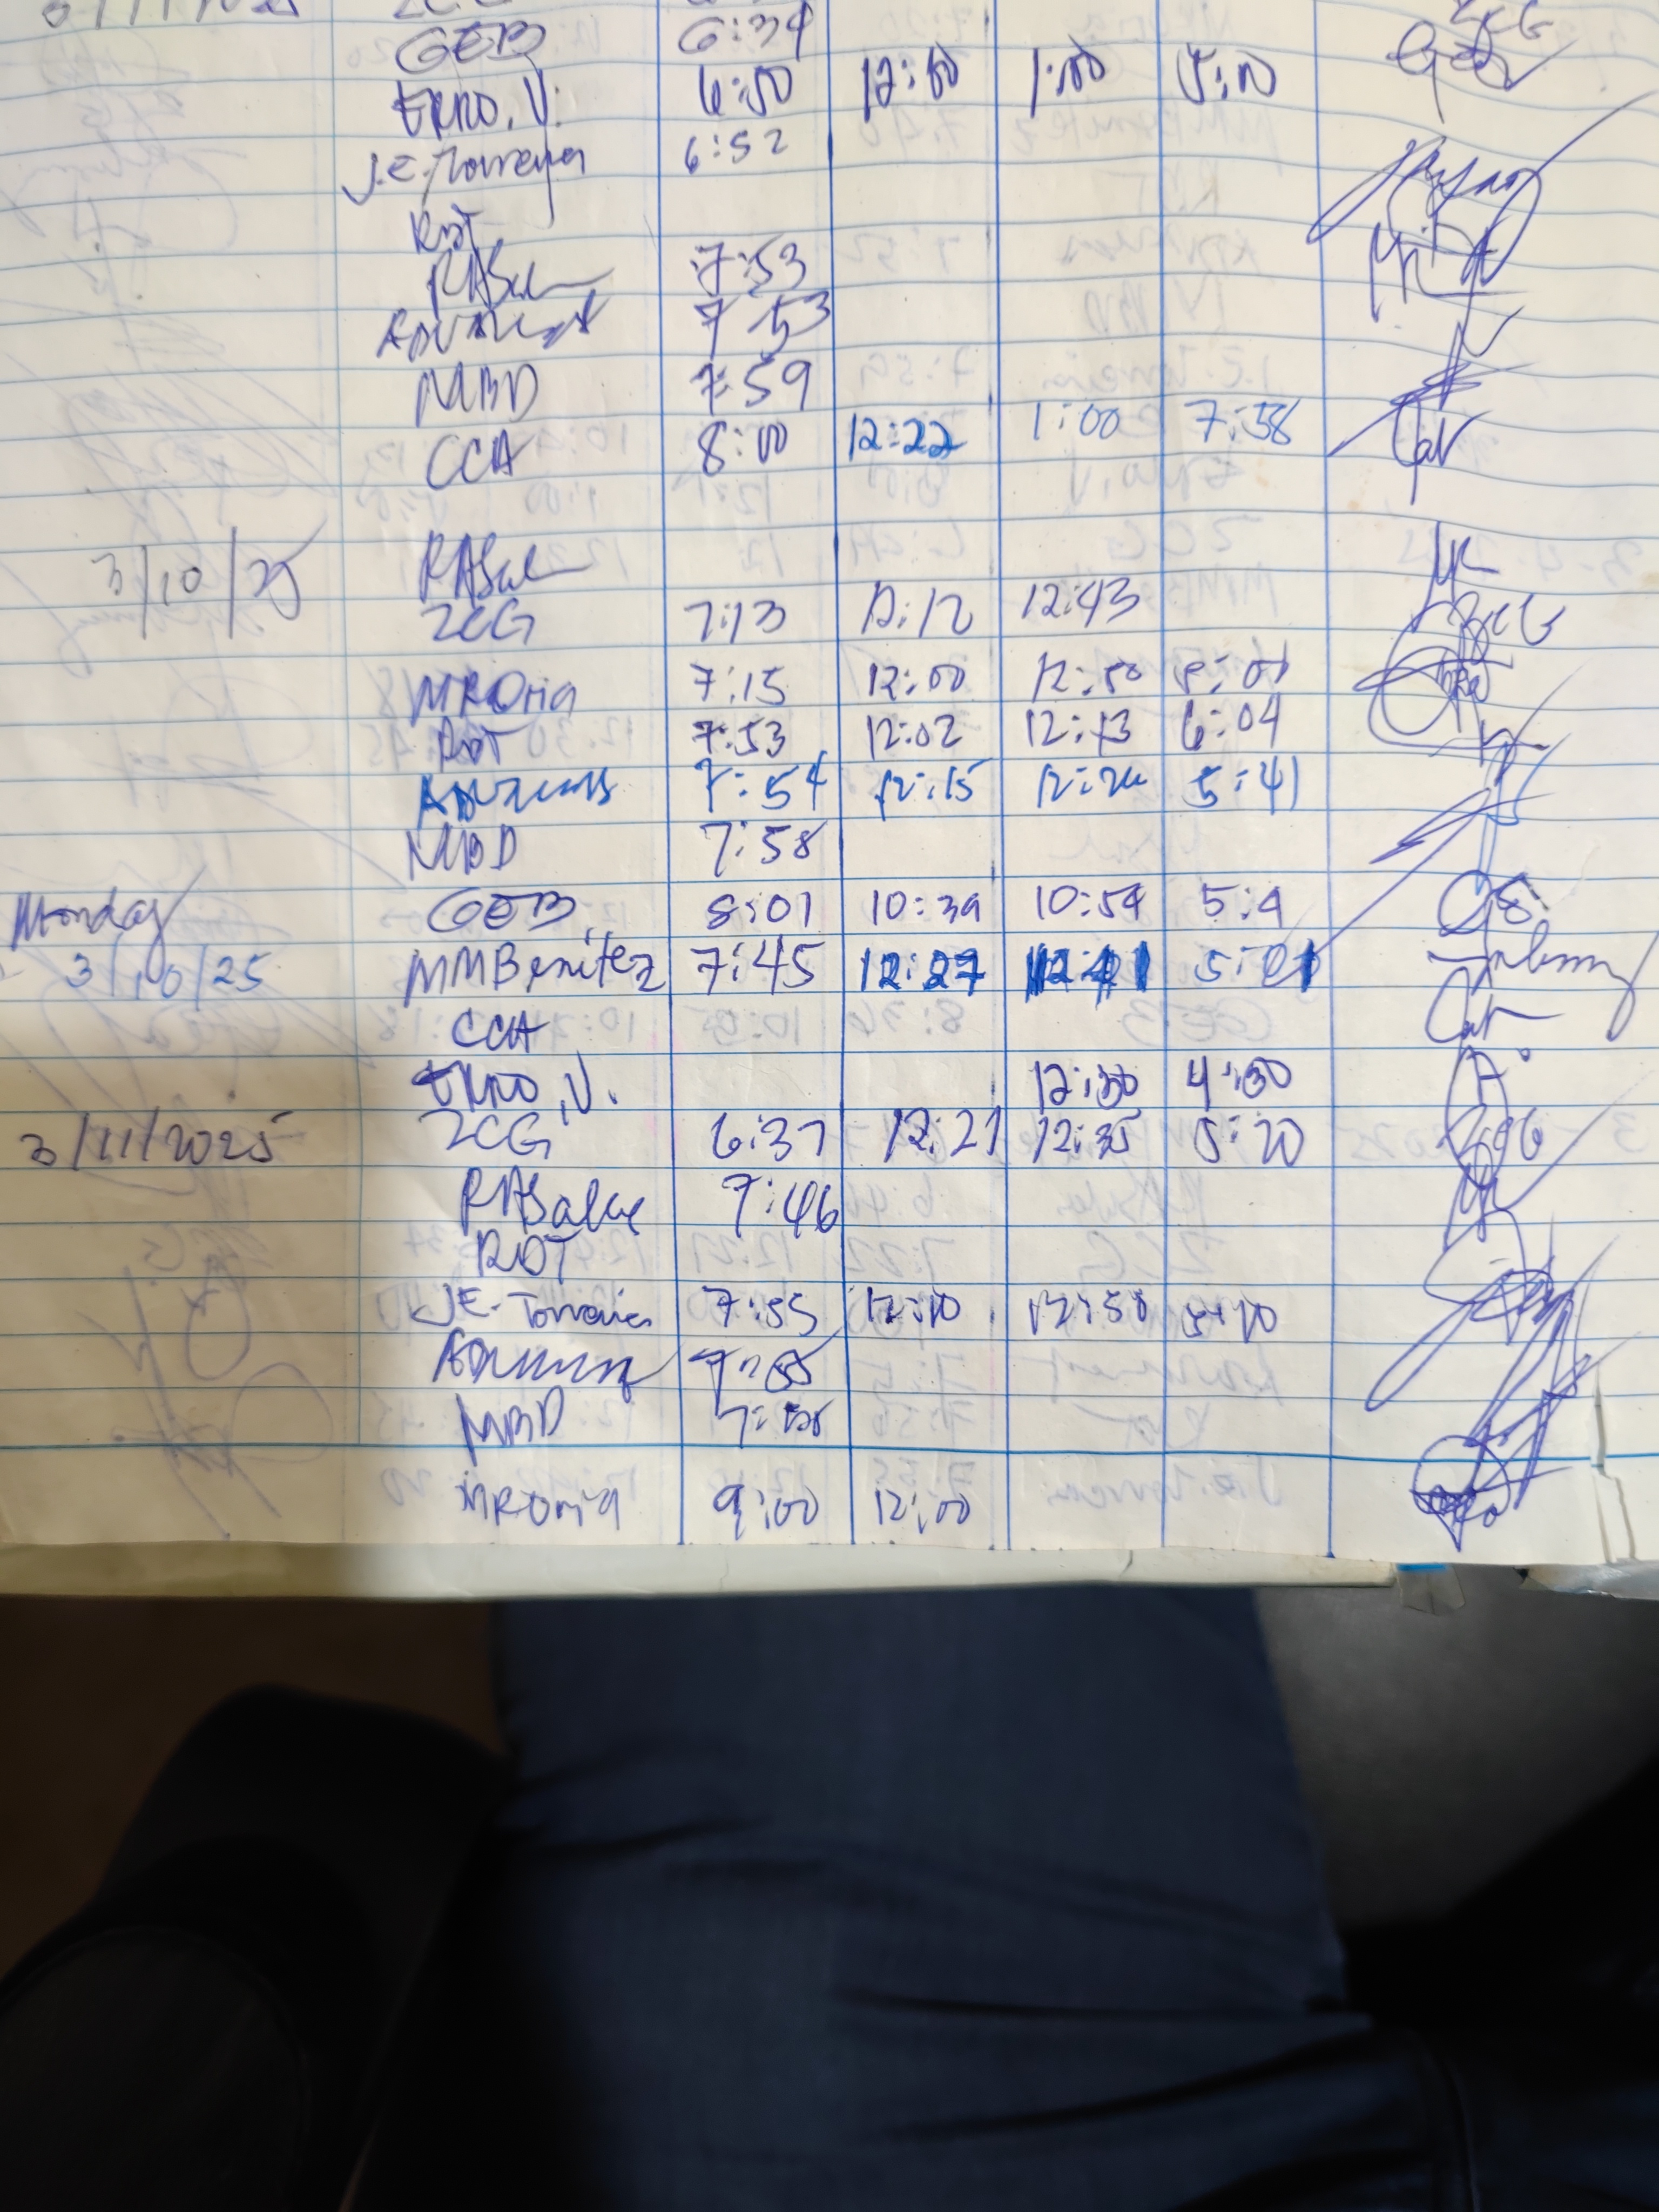 GEB 6:34
ERRO, V. 6:50 12:00 1:00 5:10
J.E. Torreña 6:52
RDT
RASal 7:53
7:53
MBD 7:59
CCA 8:00 12:22 1:00 7:58
3/10/25 RASal
ZCG 7:13 12:12 12:43 ZCG
MROria 7:15 12:00 12:50 5:01
RDT 7:53 12:02 12:13 6:04
7:54 12:15 12:26 5:41
MBD 7:58
GEB 8:01 10:39 10:54 5:4
Monday
3/10/25 MMBenitez 7:45 12:27 12:41 5:01
CCA
ERRO, V. 12:30 4:30
3/11/2025 ZCG 6:37 12:21 12:35 5:20 ZCG
RASalve 7:46
RDT
J.E. Torreña 7:55 12:10 12:58 5:10
7:55
MBD 7:58
MROria 9:00 12:00